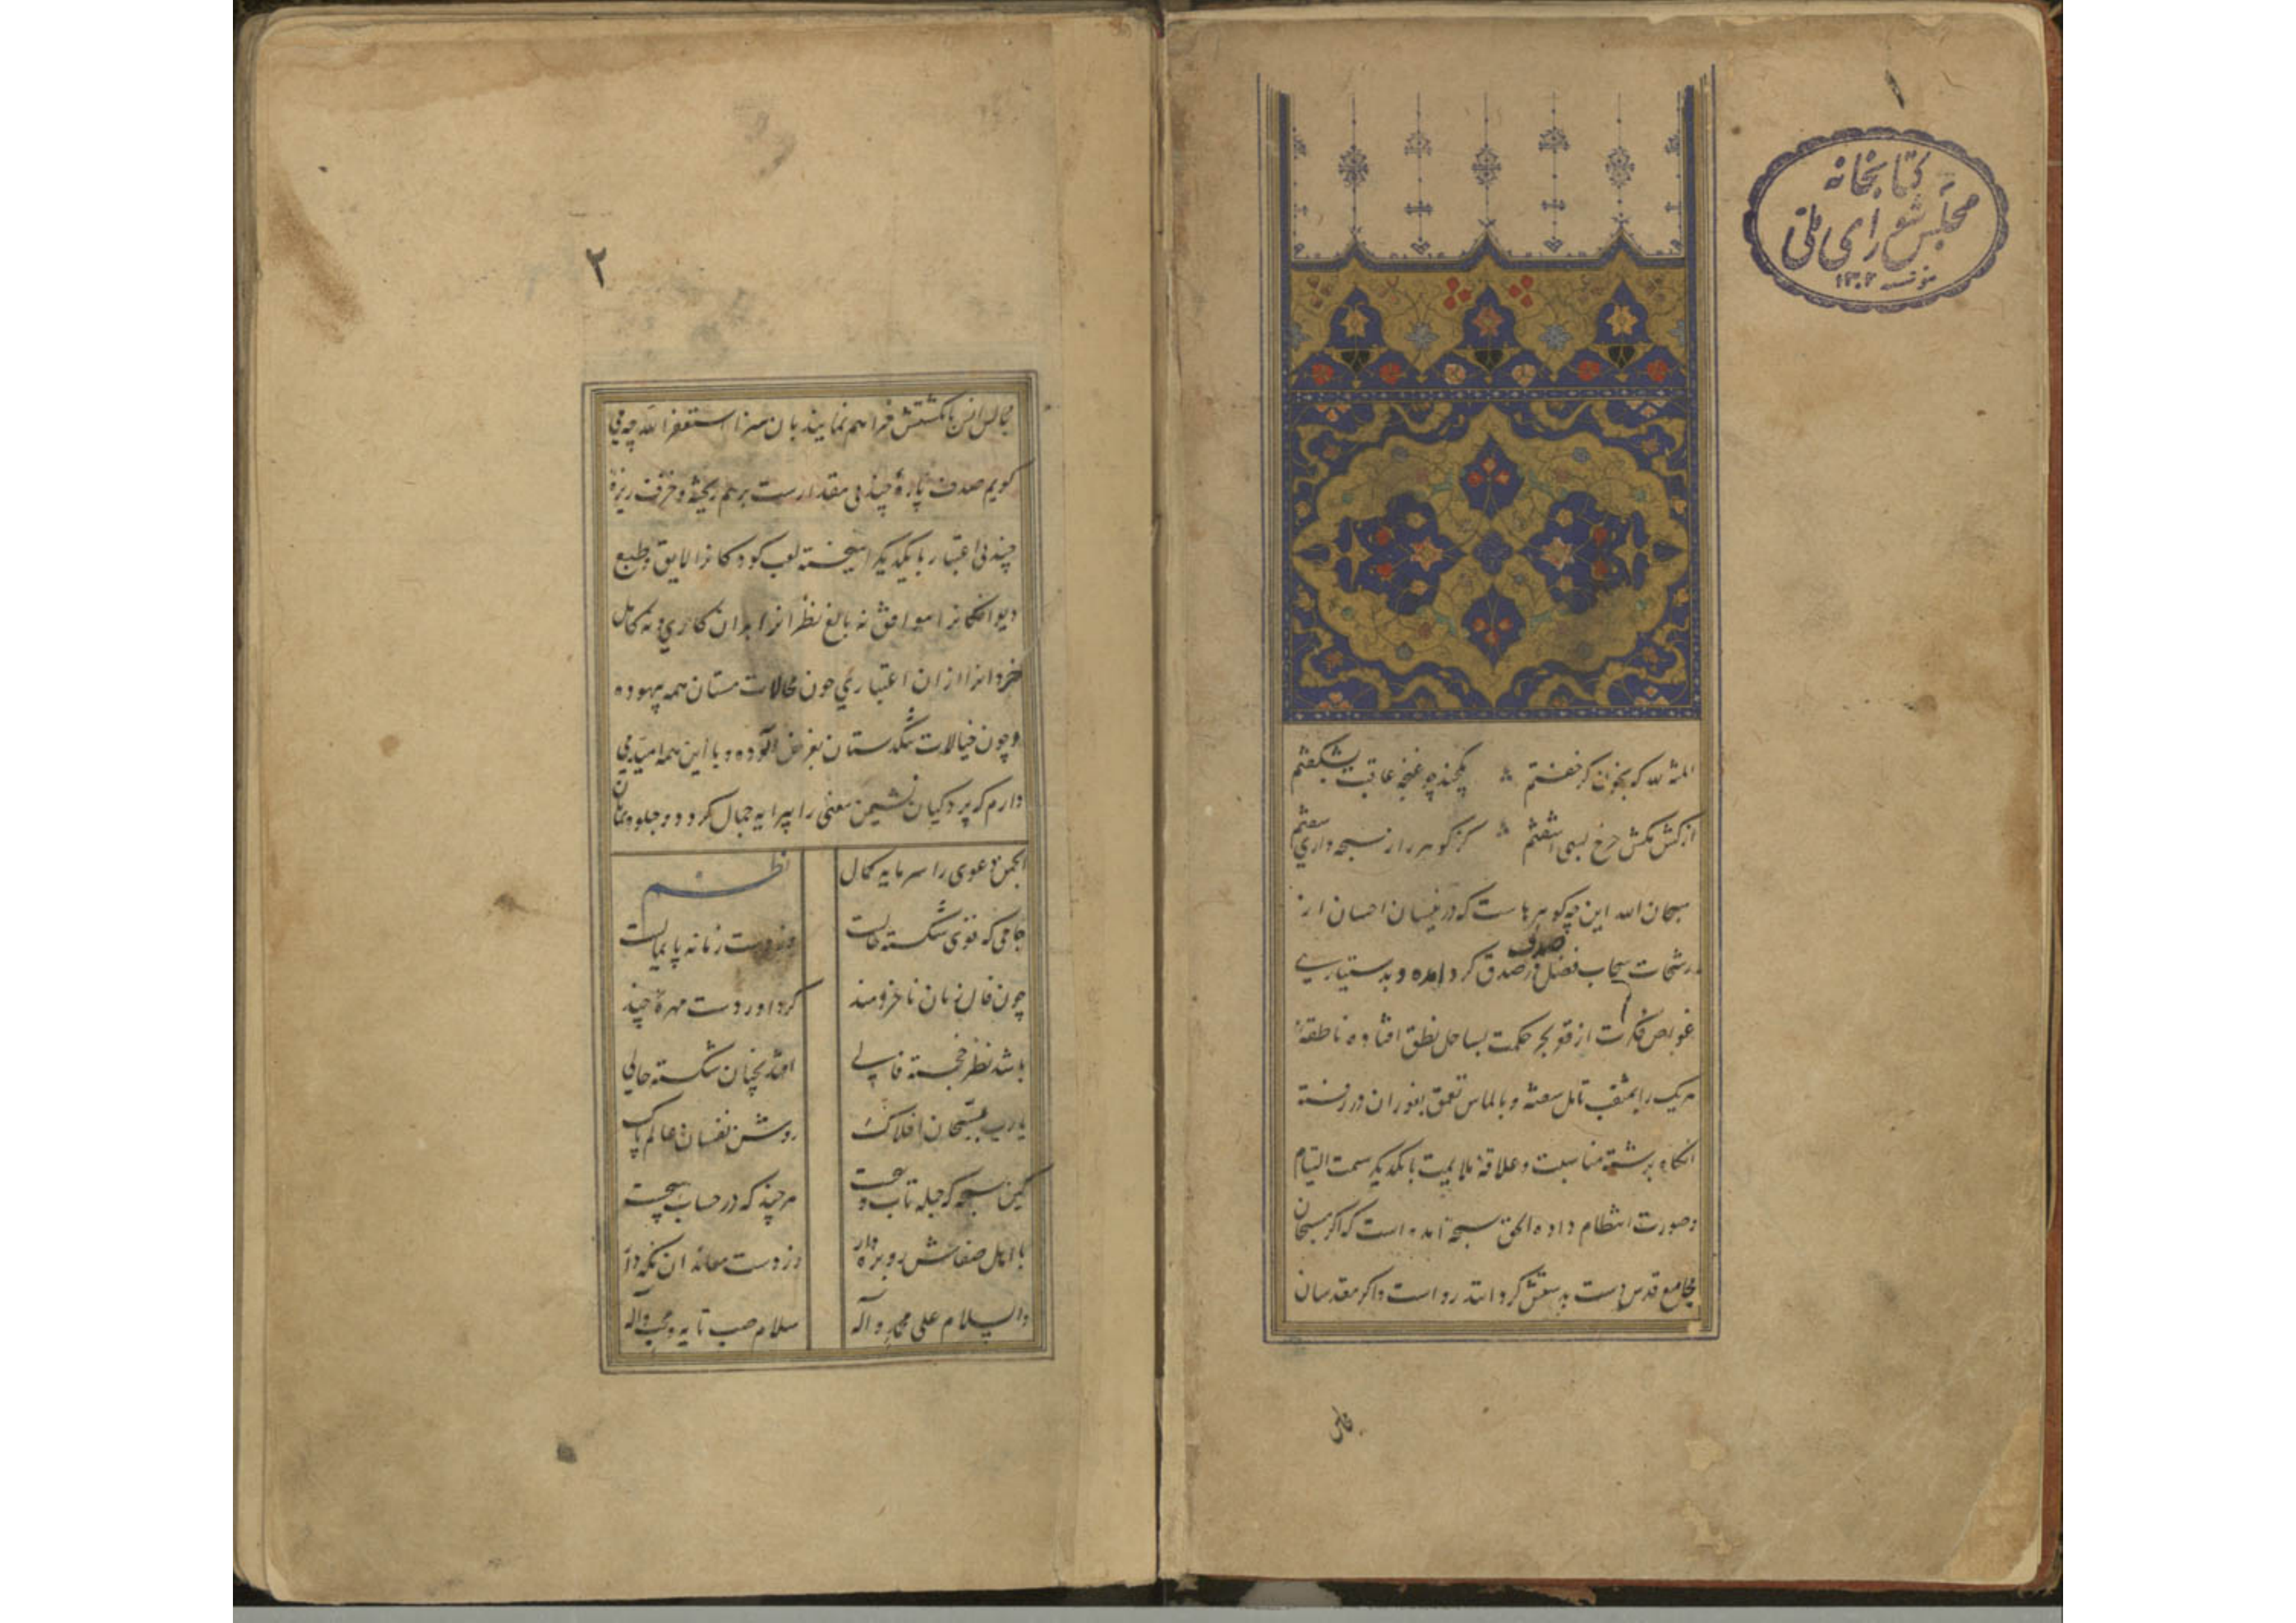 ۱
کتابخانه
مجلس شورای ملی
۱۳۰۲
المنة لله که بخون گر خفتم یکچند چو غنچه عاقبت بشکفتم
از کش مکش چرخ بسی آشفتم کز گوهر راز سبحه واری سفتم
سبحان الله این چه گوهرهاست که در نیسان احسان از
رشحات سحاب فضل در صدق صدف گرد آمده و بدستیاری
غواص فکرت از قعر بحر حکمت بساحل نطق افتاده ناطقه
هر یک را بمثقب تامل سفته و بالماس تعمق بغور آن در رفته
آنگاه برشته مناسبت و علاقه ملایمت با یکدیگر سمت التیام
و صورت انتظام داده الحق سبحه آمده است که اگر مسبحان
مجامع قدس دست پیچش گردانند رواست و اگر مقدسان
مجالس
۲
مجالس انس بانگشتش فراهم نمایند بآن سزا استغفر الله چه می
گویم صدف پاره چند بی مقدارست بر هم ریخته و خزف ریزه
چند بی اعتبار با یکدیگر آمیخته لعب کودکانرا لایق و طبع
دیوانگانرا موافق نه بالغ نظرانرا بدان کاری و نه کامل
خردانرا از آن اعتباری چون محالات مستان همه بیهوده
و چون خیالات تنگدستان بغرض آلوده و با این همه امید می
دارم که پردگیان نشیمن معنی را پیرایه جمال گردد و جلوه نمایان
انجمن دعوی را سرمایه کمال نظم
جامی که قوی شکسته حالست وز دست زمانه پایمالست
چون فال زنان ناخردمند کرد آورد دست مهره چند
باشد نظر خجسته فالی افتد بچنان شکسته حالی
یارب بمسبحان افلاک روشن نفسان عالم پاک
کین سبحه که جمله تاب و پیچست هر چند که در حساب هیچست
با اهل صفاش روبره دار وز دست معاندان نگه دار
والسلام علی محمد و آله سلام صب تایه و محب واله